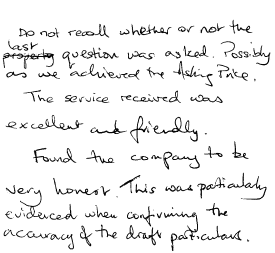 Do not recall whether or not the
last
question was asked. Possibly
as we achieved the Asking Price.
The service received was
excellent and friendly.
Found the company to be
very honest. This was particularly
evidenced when confirming the
accuracy of the draft particulars.